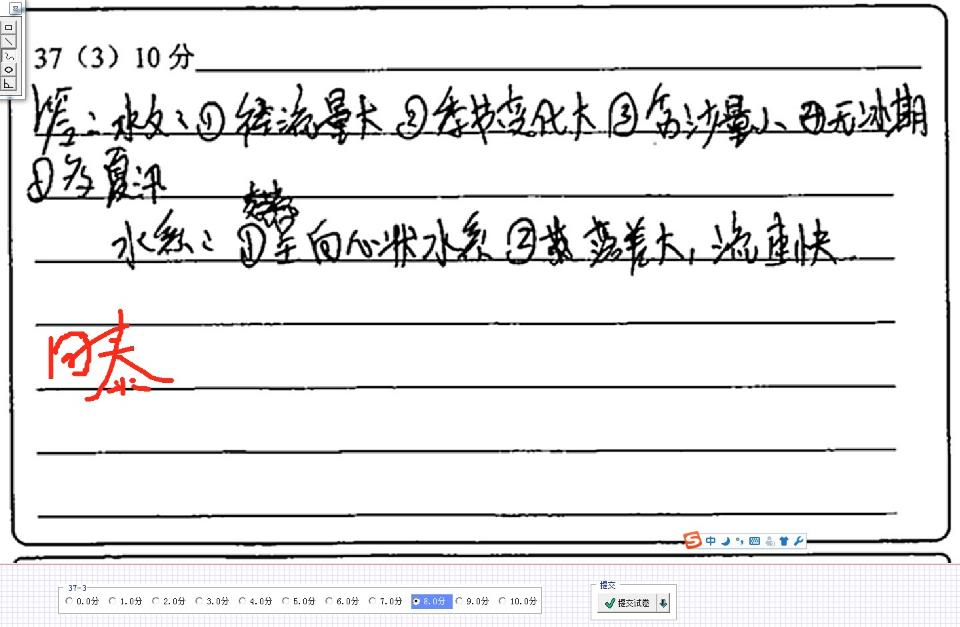 37（3）10 分
答：水文：①径流量大 ②季节变化大 ③含沙量小 ④无冰期
⑤多夏汛
水系：①呈向心状水系 ②落差大，流速快
中
37-3
0.0分 1.0分 2.0分 3.0分 4.0分 5.0分 6.0分 7.0分 8.0分 9.0分 10.0分
提交
提交试卷